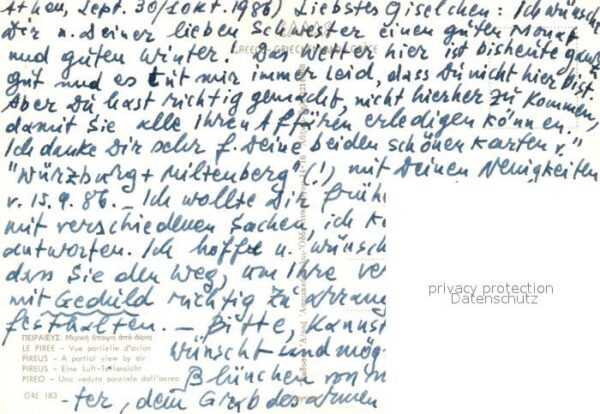 Athen, Sept. 30/1 Okt. 1986) Liebstes Giselchen: Ich wünsche
Dir u. Deiner lieben Schwester einen guten Monat
und guten Winter. Das Wetter hier ist bis heute ganz
gut und es tut mir immer leid, dass Du nicht hier bist.
Aber Du hast richtig gemacht, nicht hierher zu kommen,
damit Sie alle Ihren Affären erledigen können.
Ich danke Dir sehr f. Deine beiden schönen Karten v."
"Würzburg + Miltenberg" (!) mit Deinen Neuigkeiten
v. 15.9.86. – Ich wollte Dir früh
mit verschiedenen Sachen, ich K
antworten. Ich hoffe u. wünsch
dass Sie den Weg, um Ihre ver
mit Geduld richtig zu arrang
festhalten. – Bitte, Kannst
wünscht und mög
Blünchen von
-ter, dem Grab des armen
ΠΕΙΡΑΙΕΥΣ Μερική άποψις από αέρος
LE PIREE – Vue partielle d'avion
PIREUS – A partial view by air
PIREUS – Eine Luft-Teilansicht
PIREO – Una veduta parziale dall'aereo
GRE 183
privacy protection
Datenschutz